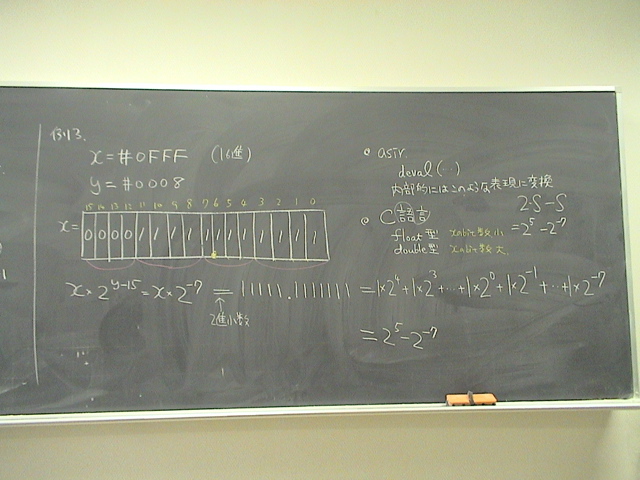 例13.
x = #0FFF (16進)
y = #0008
15 14 13 12 11 10 9 8 7 6 5 4 3 2 1 0
x = 0 0 0 0 1 1 1 1 1 1 1 1 1 1 1 1
x × 2^{y-15} = x × 2^{-7} = 11111.1111111 = 1×2^4+1×2^3+…+1×2^0+1×2^{-1}+…+1×2^{-7}
↑
2進小数
= 2^5 - 2^{-7}
○ asir
deval(…)
内部的にはこのような表現に変換
○ C言語
float型 xのbit数小
double型 xのbit数大
2·S - S
= 2^5 - 2^{-7}